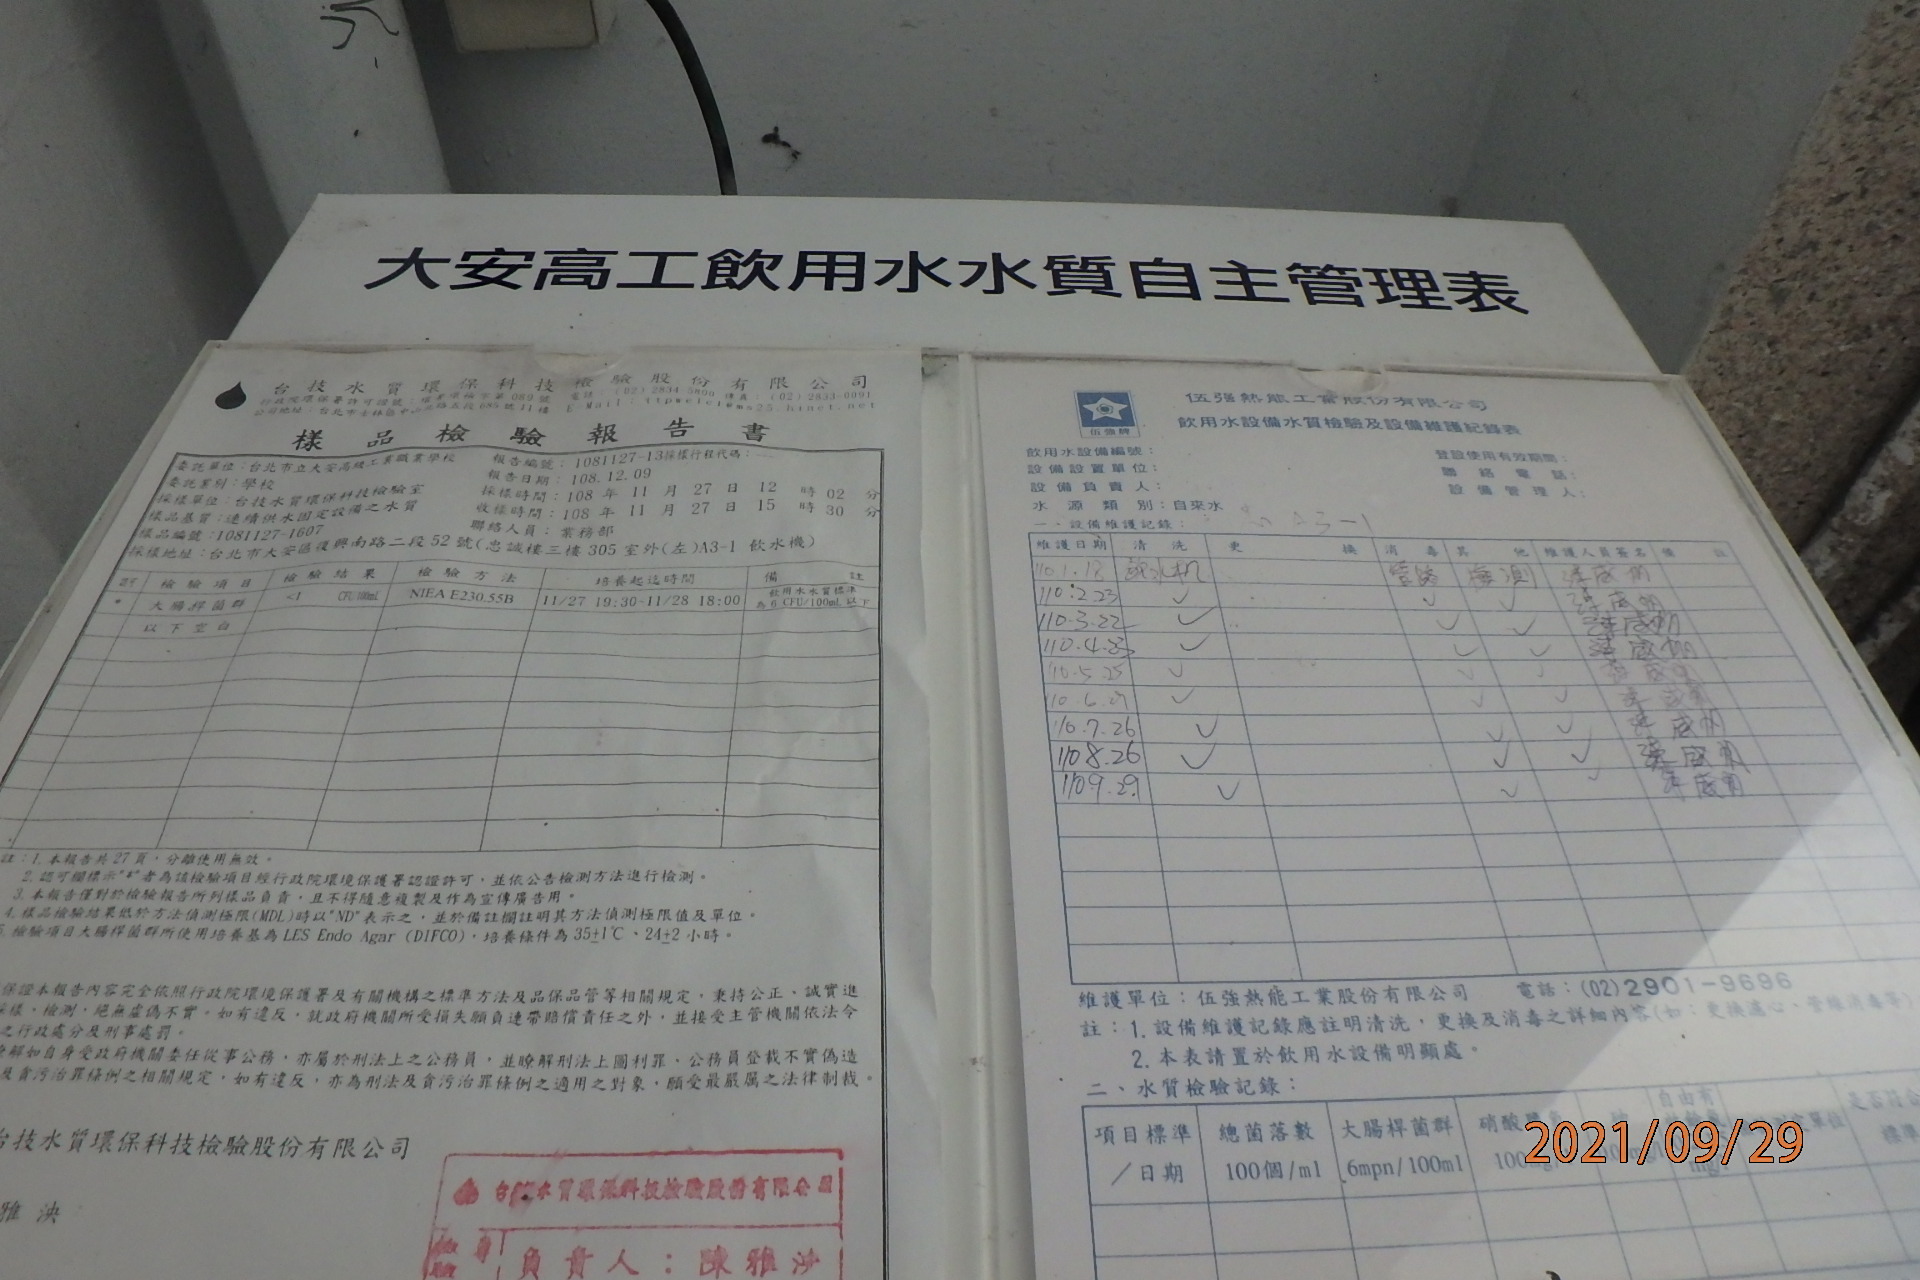 大安高工飲用水水質自主管理表
台技水質環保科技檢驗股份有限公司
樣品檢驗報告書
委託單位：台北市立大安高級工業職業學校
報告編號：1081127-13採樣行程代碼：---
委託業別：學校
報告日期：108.12.09
採樣單位：台技水質環保科技檢驗室
採樣時間：108 年 11 月 27 日 12 時 02 分
樣品基質：連續供水固定設備之水質
收樣時間：108 年 11 月 27 日 15 時 30 分
樣品編號：1081127-1607
聯絡人員：業務部
採樣地址：台北市大安區復興南路二段52號(忠誠樓三樓305室外(左)A3-1 飲水機)
檢驗項目 檢驗結果 檢驗方法 培養起迄時間 備註
* 大腸桿菌群 <1 CFU/100mL NIEA E230.55B 11/27 19:30-11/28 18:00 飲用水水質標準
為6 CFU/100mL以下
以下空白
註：1.本報告共27頁，分離使用無效。
2.認可欄標示"*"者為該檢驗項目經行政院環境保護署認證許可，並依公告檢測方法進行檢測。
3.本報告僅對於檢驗報告所列樣品負責，且不得隨意複製及作為宣傳廣告用。
4.樣品檢驗結果低於方法偵測極限(MDL)時以"ND"表示之，並於備註欄註明其方法偵測極限值及單位。
檢驗項目大腸桿菌群所使用培養基為LES Endo Agar (DIFCO)，培養條件為35±1℃、24±2小時。
保證本報告內容完全依照行政院環境保護署及有關機構之標準方法及品保品管等相關規定，秉持公正、誠實進
採樣，檢測，絕無虛偽不實。如有違反，就政府機關所受損失願負連帶賠償責任之外，並接受主管機關依法令
之行政處分及刑事處罰。
瞭解如自身受政府機關委任從事公務，亦屬於刑法上之公務員，並瞭解刑法上圖利罪、公務員登載不實偽造
及貪污治罪條例之相關規定，如有違反，亦為刑法及貪污治罪條例之適用之對象，願受最嚴厲之法律制裁。
台技水質環保科技檢驗股份有限公司
雅 泱
台技水質環保科技檢驗股份有限公司
負責人：陳雅泱
伍強牌
伍強熱能工業股份有限公司
飲用水設備水質檢驗及設備維護紀錄表
飲用水設備編號：
登設使用有效期間：
設備設置單位：
聯絡電話：
設備負責人：
設備管理人：
水源類別：自來水
一、設備維護記錄：
A3-1
維護日期 清洗 更換 消毒 其他 維護人員簽名 備註
110.1.18 飲水机 管路 檢測
110.2.23 ✓ ✓ ✓
110.3.22 ✓ ✓ ✓
110.4.8 ✓ ✓ ✓
110.5.25 ✓ ✓ ✓
110.6.21 ✓ ✓ ✓
110.7.26 ✓ ✓ ✓
110.8.26 ✓ ✓ ✓
110.9.29 ✓ ✓ ✓
維護單位：伍強熱能工業股份有限公司 電話：(02)2901-9696
註：1.設備維護記錄應註明清洗，更換及消毒之詳細內容(如：更換濾心、管線消毒等)
2.本表請置於飲用水設備明顯處。
二、水質檢驗記錄：
項目標準 總菌落數 大腸桿菌群 硝酸鹽氮 自由有 是否符合
／日期 100個/ml 6mpn/100ml 標準
2021/09/29